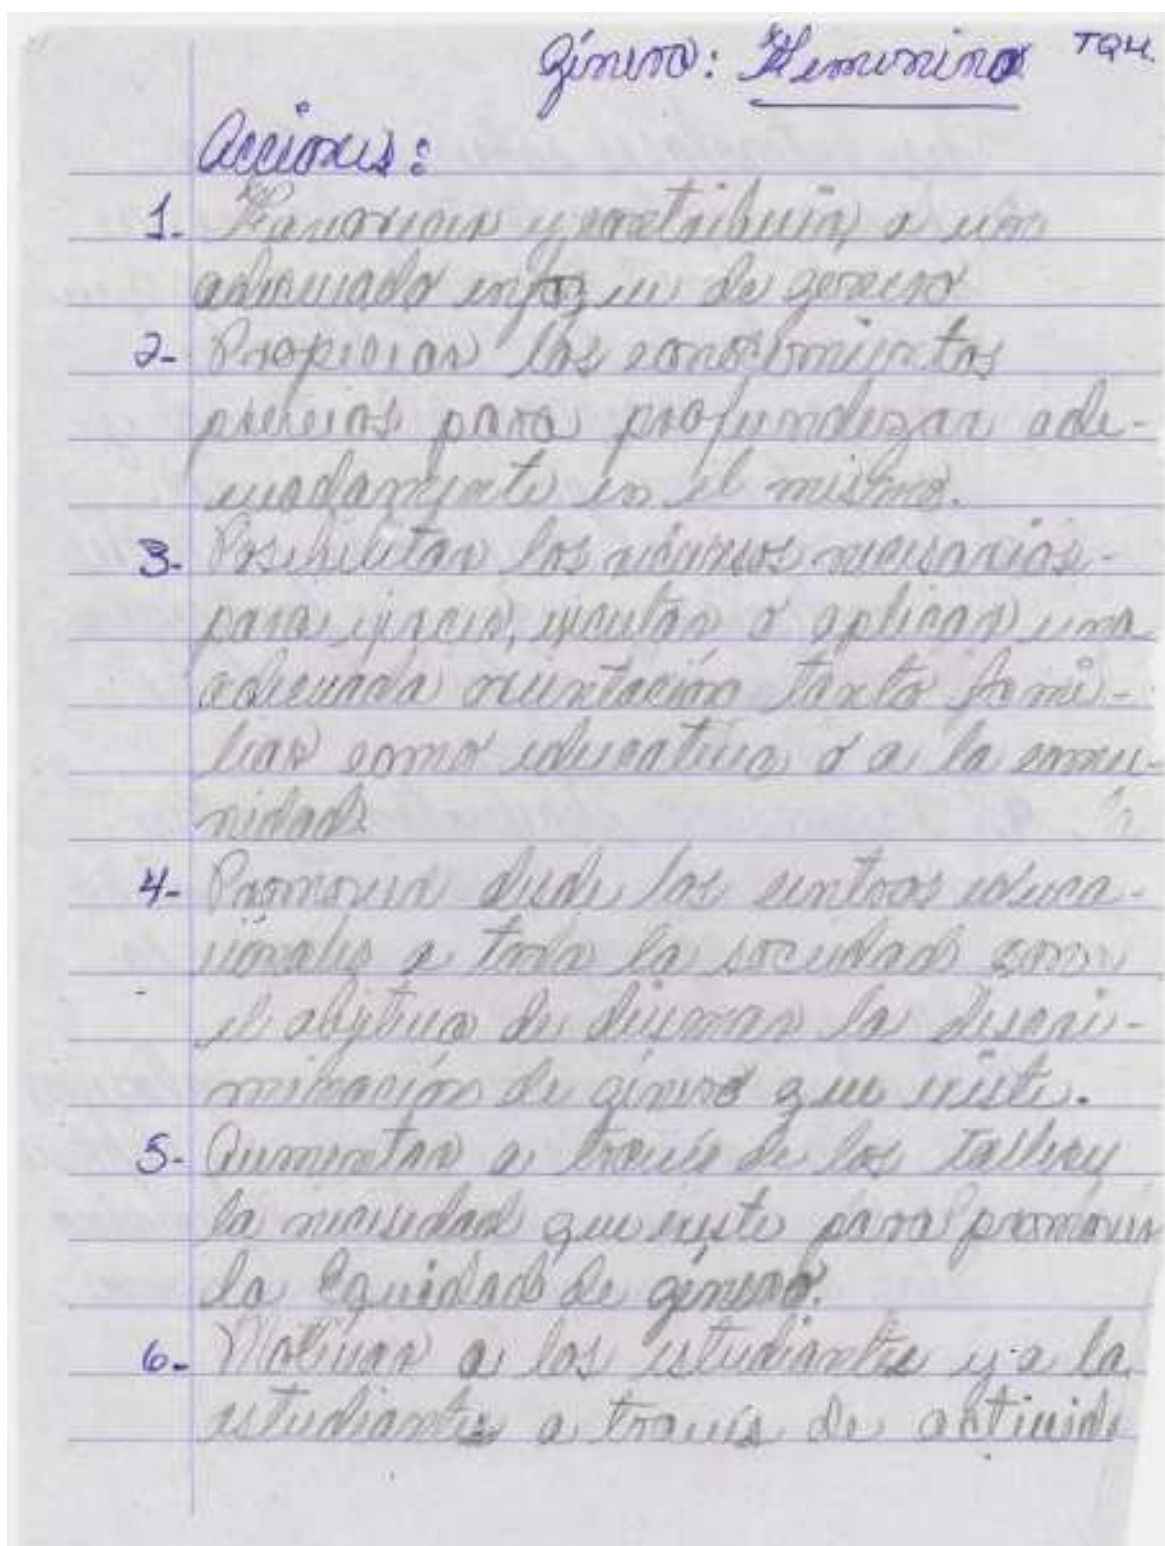 Género: Femenino TQH.
Acciones:
1- Favorecer y contribuir, a un
adecuado enfoque de género
2- Propiciar los conocimientos
previos para profundizar ade-
cuadamente en el mismo.
3- Posibilitar los recursos necesarios-
para ejercer, ejecutar o aplicar una
adecuada orientación tanto fami-
liar como educativa o a la comu-
nidad.
4- Promover desde los centros educa-
cionales a toda la sociedad con
el objetivo de diezmar la discri-
minación de género que existe.
5- Aumentar a través de los talleres
la necesidad que existe para promover
la Equidad de género.
6- Motivar a los estudiantes y a la
estudiantes a través de activid